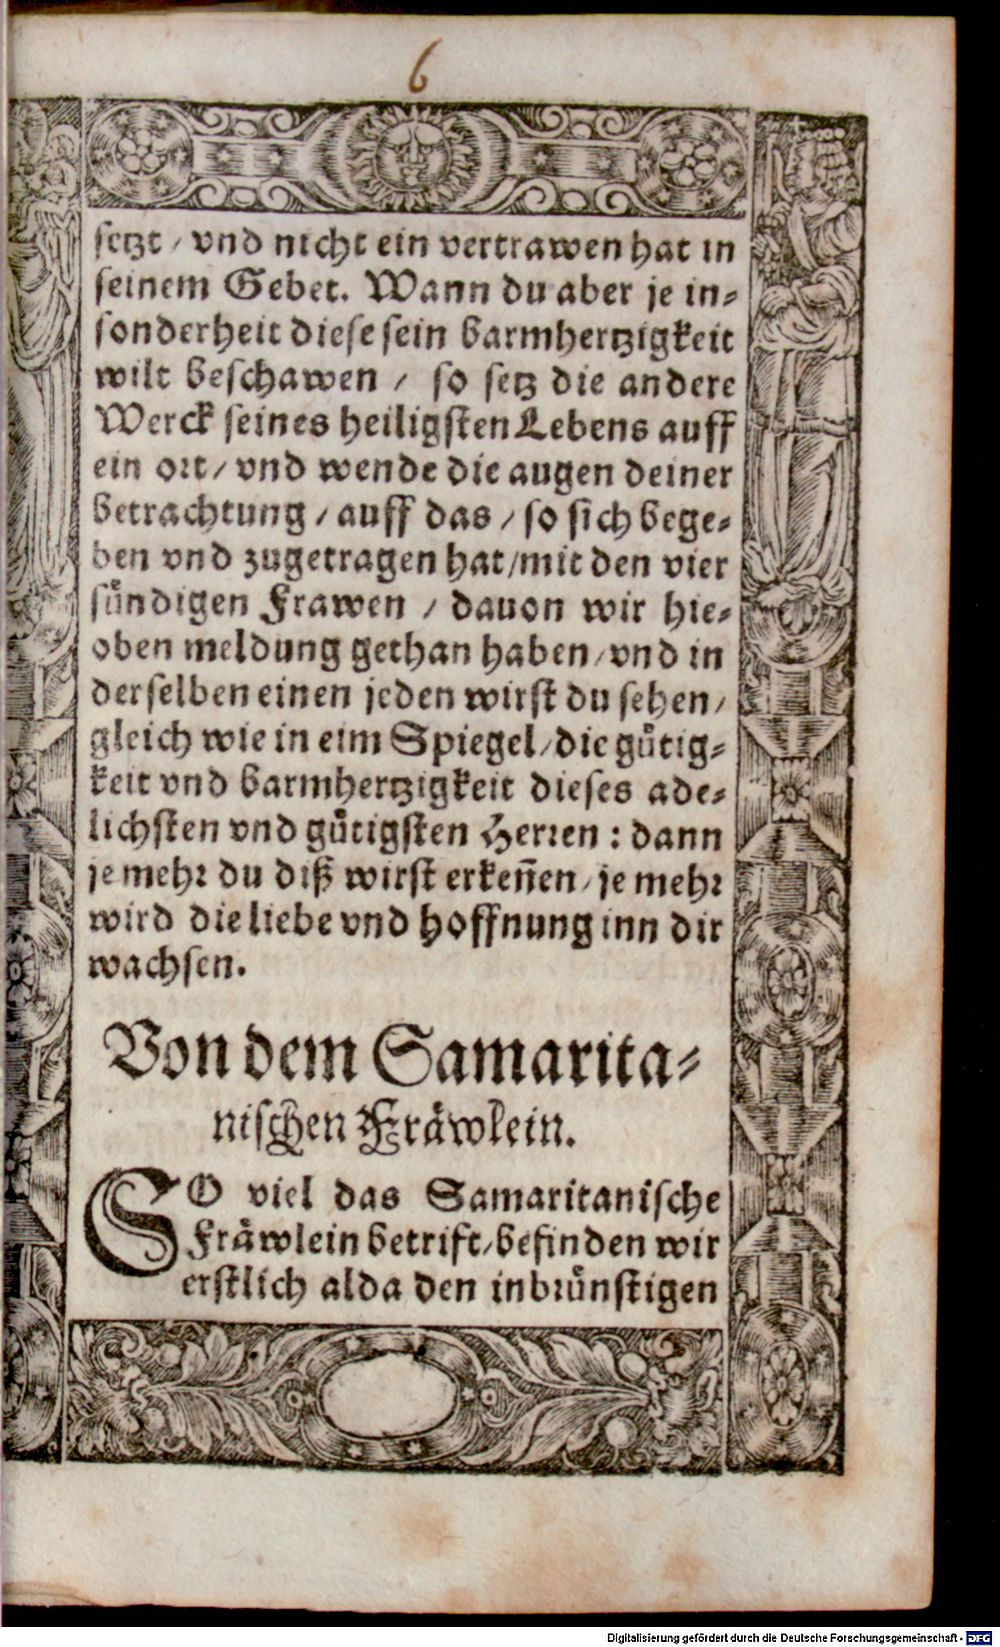 6
setzt / vnd nicht ein vertrawen hat in
seinem Gebet. Wann du aber je in⸗
sonderheit diese sein barmhertzigkeit
wilt beschawen / so setz die andere
Werck seines heiligsten Lebens auff
ein ort / vnd wende die augen deiner
betrachtung / auff das / so sich bege⸗
ben vnd zugetragen hat / mit den vier
sündigen Frawen / dauon wir hie⸗
oben meldung gethan haben / vnd in
derselben einen jeden wirst du sehen /
gleich wie in eim Spiegel / die gütig⸗
keit vnd barmhertzigkeit dieses ade⸗
lichsten vnd gütigsten Herren : dann
je mehr du diß wirst erkeñen / je mehr
wird die liebe vnd hoffnung inn dir
wachsen.
Von dem Samarita⸗
nischen Fräwlein.
SO viel das Samaritanische
Fräwlein betrift / befinden wir
erstlich alda den inbrünstigen
Digitalisierung gefördert durch die Deutsche Forschungsgemeinschaft - DFG